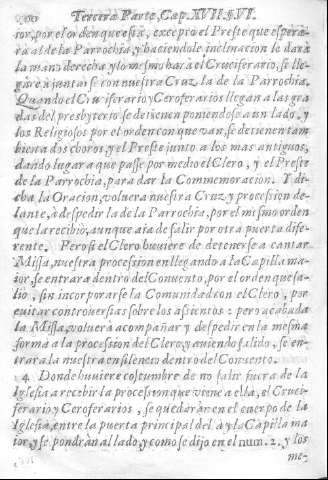 Tercera Parte, Cap. XVII. §. VI.
ior, por el orden que està, excepto el Preste que espera-
rà al de la Parrochia, y haciendole inclinacion le darà
la mano derecha y lo mesmo harà el Cruciferario, se lle-
gare à juntarse con nuestra Cruz la de la Parrochia.
Quando el Cruciferario y Ceroferarios llegan a las gra
das del presbyterio se detienen poniendose a un lado, y
los Religiosos por el orden con que van, se detienen tam
bien a dos choros, y el Preste junto a los mas antiguos,
dando lugar a que passe por medio el Clero, y el Preste
de la Parrochia, para dar la Commemoracion. Y di-
cha la Oracion, volverà nuestra Cruz y procession de-
lante, à despedir la de la Parrochia, por el mismo orden
que la recibio, aunque aia de salir por otra puerta dife-
rente. Pero si el Clero huviere de detenerse a cantar
Missa, nuestra procession en llegando a la Capilla ma-
ior, se entrara dentro del Convento, por el orden que sa-
lio, sin incorporarse la Comunidad con el Clero, por
evitar controversias sobre los asientos: pero acabada
la Missa, volverà acompañar y despedir en la mesma
forma a la procession del Clero, y aviendo salido, se en-
trara la nuestra en silencio dentro del Convento.
4. Donde huviere costumbre de no salir fuera de la
Iglesia a recebir la procession que viene a ella, el Cruci-
ferario y Ceroferarios, se quedaràn en el cuerpo de la
Iglesia, entre la puerta principal de la y la Capilla ma
ior, y se pondràn al lado, y como se dijo en el num. 2. y los
me-